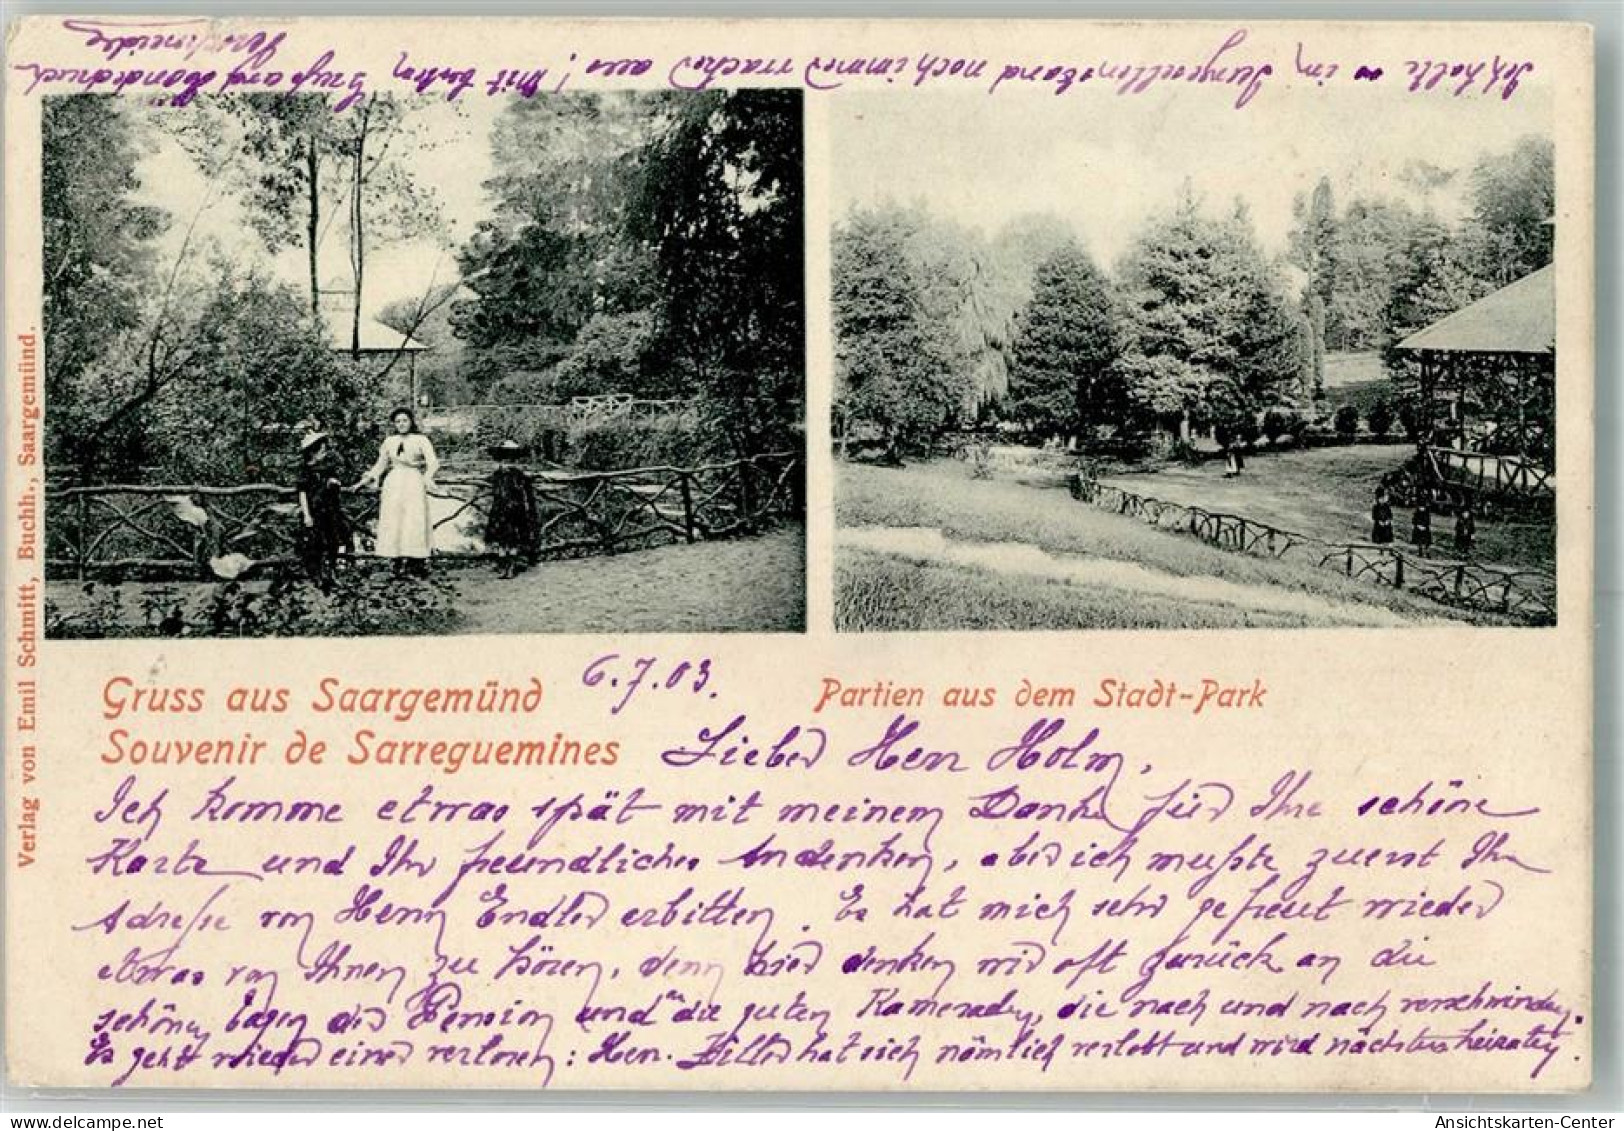 Verlag von Emil Schmitt, Buchh., Saargemünd.
Gruss aus Saargemünd
Souvenir de Sarreguemines
Partien aus dem Stadt-Park
6.7.03.
Lieber Herr Holm,
Ich komme etwas spät mit meinem Danke für Ihre schöne
Karte und Ihr freundliches Andenken, aber ich mußte zuerst Ihre
Adresse von Herrn Endler erbitten. Es hat mich sehr gefreut wieder
etwas von Ihnen zu hören, denn hier denken wir oft zurück an die
schönen Tage der Pension und an die guten Kameraden, die nach und nach verschwinden.
Es geht wieder einer verloren: Herr Hiller hat sich nämlich verlobt und wird nächstens heiraten.
Ich halte es im Junggesellenstand noch immer wacker aus! Mit besten Gruß und Händedruck
Ansichtskarten-Center